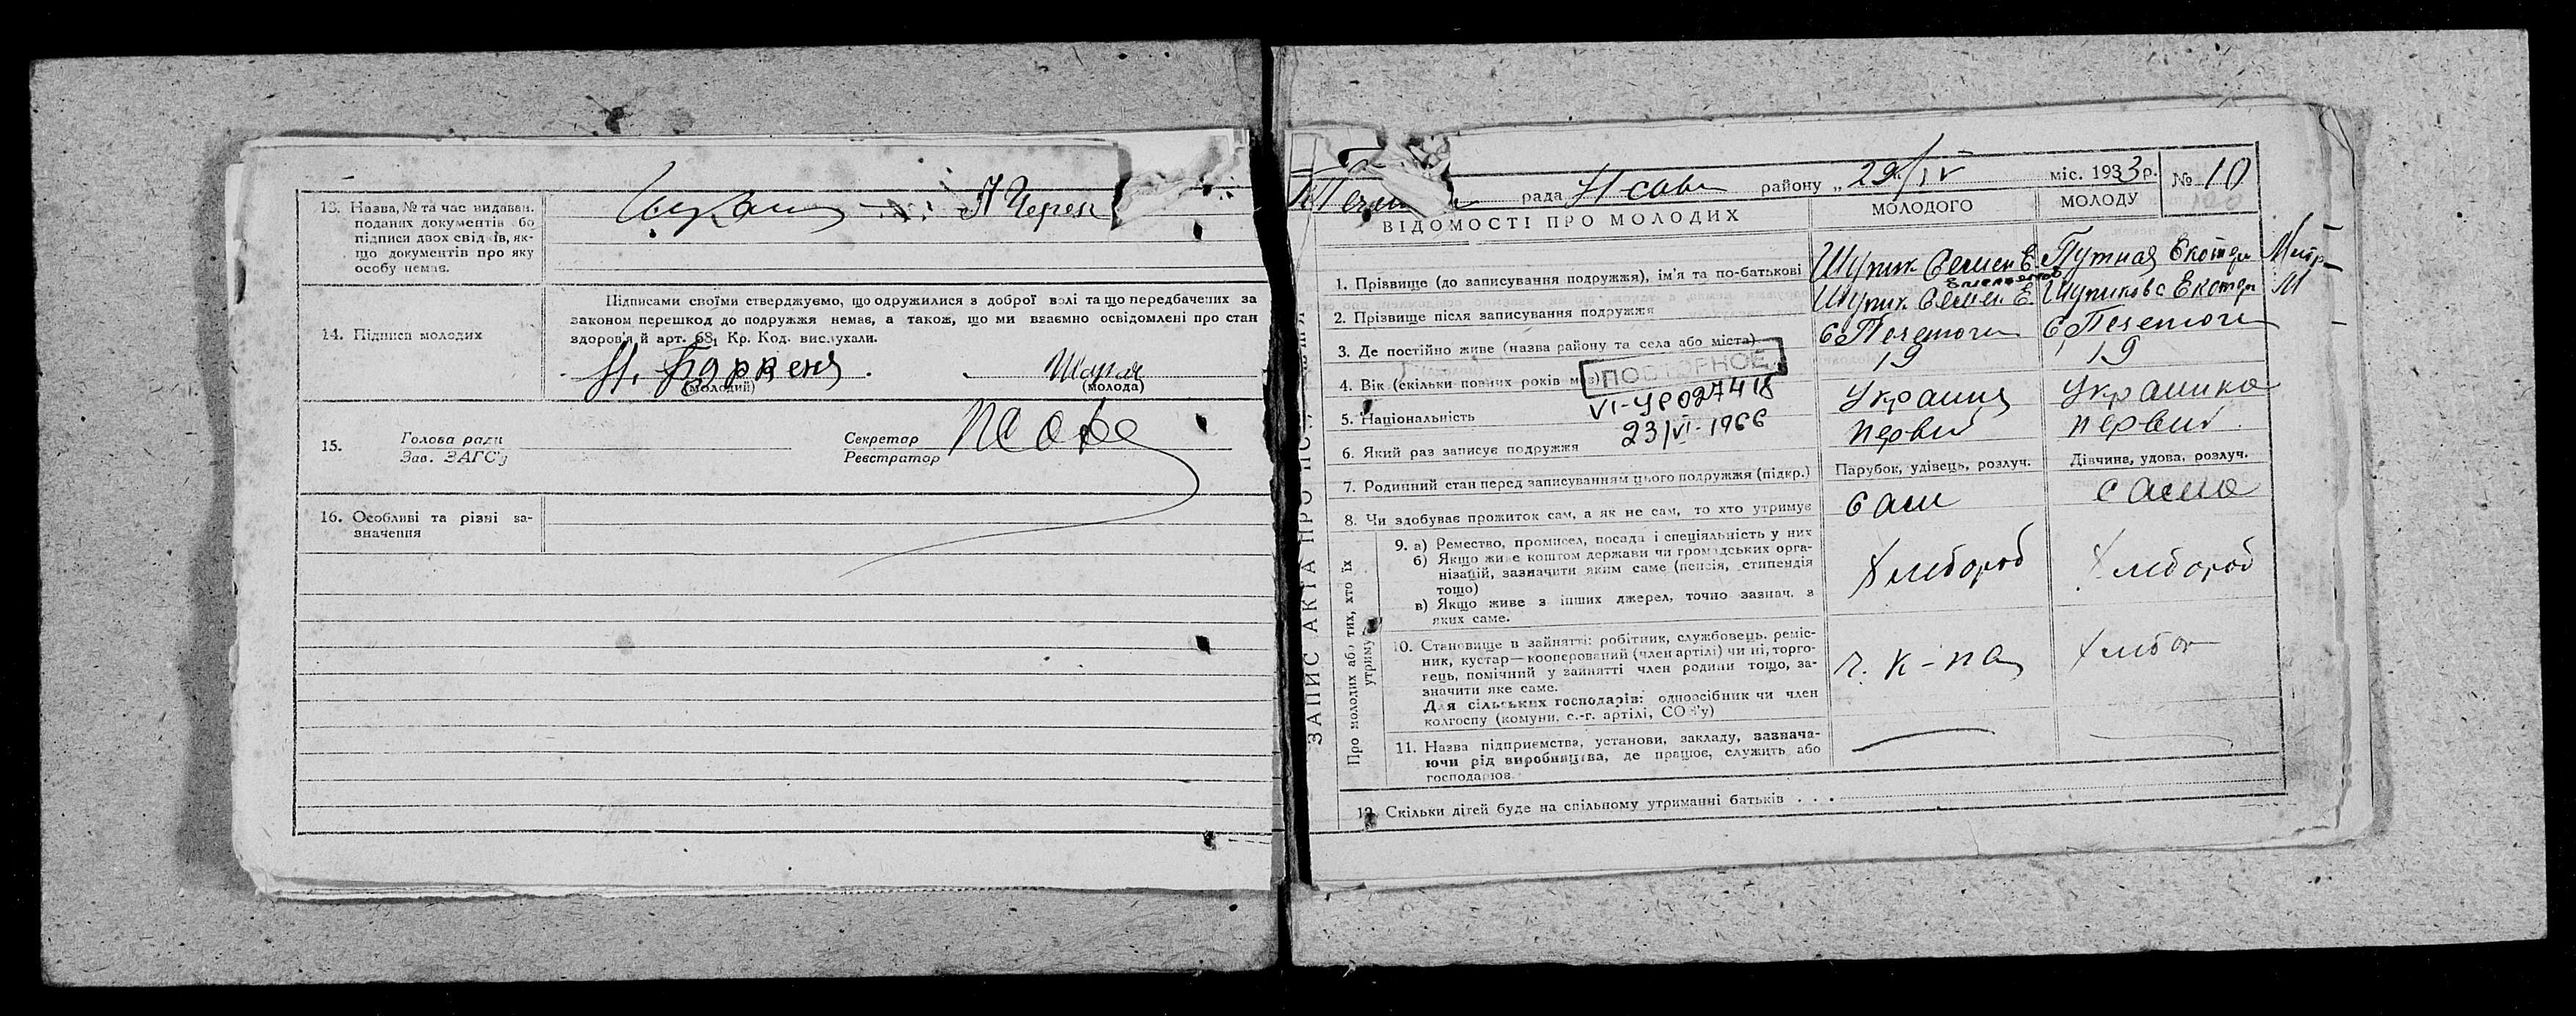 13. Назва, № та час видаван.
поданих документів або
підписи двох свідків, як-
що документів про яку
особу немає.
Черен
Підписами своїми стверджуємо, що одружилися з доброї волі та що передбачених за
законом перешкод до подружжя немає, а також, що ми взаємно освідомлені про стан
здоров'я й арт. 68, Кр. Код. вислухали.
14. Підписи молодих
(молодий)
(молода)
15.
Голова ради
Зав. ЗАГС'у
Секретар
Реєстратор
16. Особливі та різні за-
значення
ЗАПИС АКТА ПРО
рада Носівс району „29/IV міс. 1933 р. № 10
ВІДОМОСТІ ПРО МОЛОДИХ
МОЛОДОГО
МОЛОДУ
1. Прізвище (до записування подружжя), ім'я та по-батькові
Шупик Семен Е.
Путная Екотер
2. Прізвище після записування подружжя
Шупик Семен Е.
Шупикова Екотер М
3. Де постійно живе (назва району та села або міста)
4. Вік (скільки повних років має)
19
19
ПОВТОРНОЕ
VI-УР 027418
23/VI-1966
5. Національність
Украинц
Украинка
6. Який раз записує подружжя
первий
первий
7. Родинний стан перед записуванням цього подружжя (підкр.)
Парубок, удівець, розлуч.
Дівчина, удова, розлуч.
8. Чи здобуває прожиток сам, а як не сам, то хто утримує
сам
сама
Про молодих або тих, хто їх утримує
9. а) Ремество, промисел, посада і спеціяльність у них
б) Якщо живе коштом держави чи громадських орга-
нізацій, зазначити яким саме (пенсія, стипендія
тощо)
в) Якщо живе з інших джерел, точно зазнач. з
яких саме.
Хлебороб
Хлебороб
10. Становище в зайнятті: робітник, службовець, реміс-
ник, кустар—кооперований (член артілі) чи ні, торго-
вець, помічний у зайнятті член родини тощо, за-
значити яке саме.
Для сільських господарів: одноосібник чи член
колгоспу (комуни, с.-г. артілі, СОЗ'у)
11. Назва підприємства, установи, закладу, зазнача-
ючи рід виробництва, де працює, служить або
господарює.
12. Скільки дітей буде на спільному утриманні батьків . . .